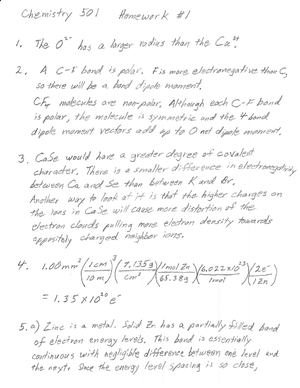 Chemistry 501 Homework #1
1. The O²⁻ has a larger radius than the Ca²⁺.
2. A C-F bond is polar. F is more electronegative than C,
so there will be a bond dipole moment.
CF₄ molecules are non-polar. Although each C-F bond
is polar, the molecule is symmetric and the 4 bond
dipole moment vectors add up to 0 net dipole moment.
3. CaSe would have a greater degree of covalent
character. There is a smaller difference in electronegativity
between Ca and Se than between K and Br.
Another way to look at it is that the higher charges on
the ions in CaSe will cause more distortion of the
electron clouds pulling more electron density towards
oppositely charged neighbor ions.
4. 1.00 mm³ (1 cm/10 m)³ (7.135 g/cm³) (1 mol Zn/65.38 g) (6.022x10²³/1 mol) (2e⁻/1 Zn)
= 1.35 x 10²⁰ e⁻
5. a) Zinc is a metal. Solid Zn has a partially filled band
of electron energy levels. This band is essentially
continuous with negligible difference between one level and
the next. Since the energy level spacing is so close,